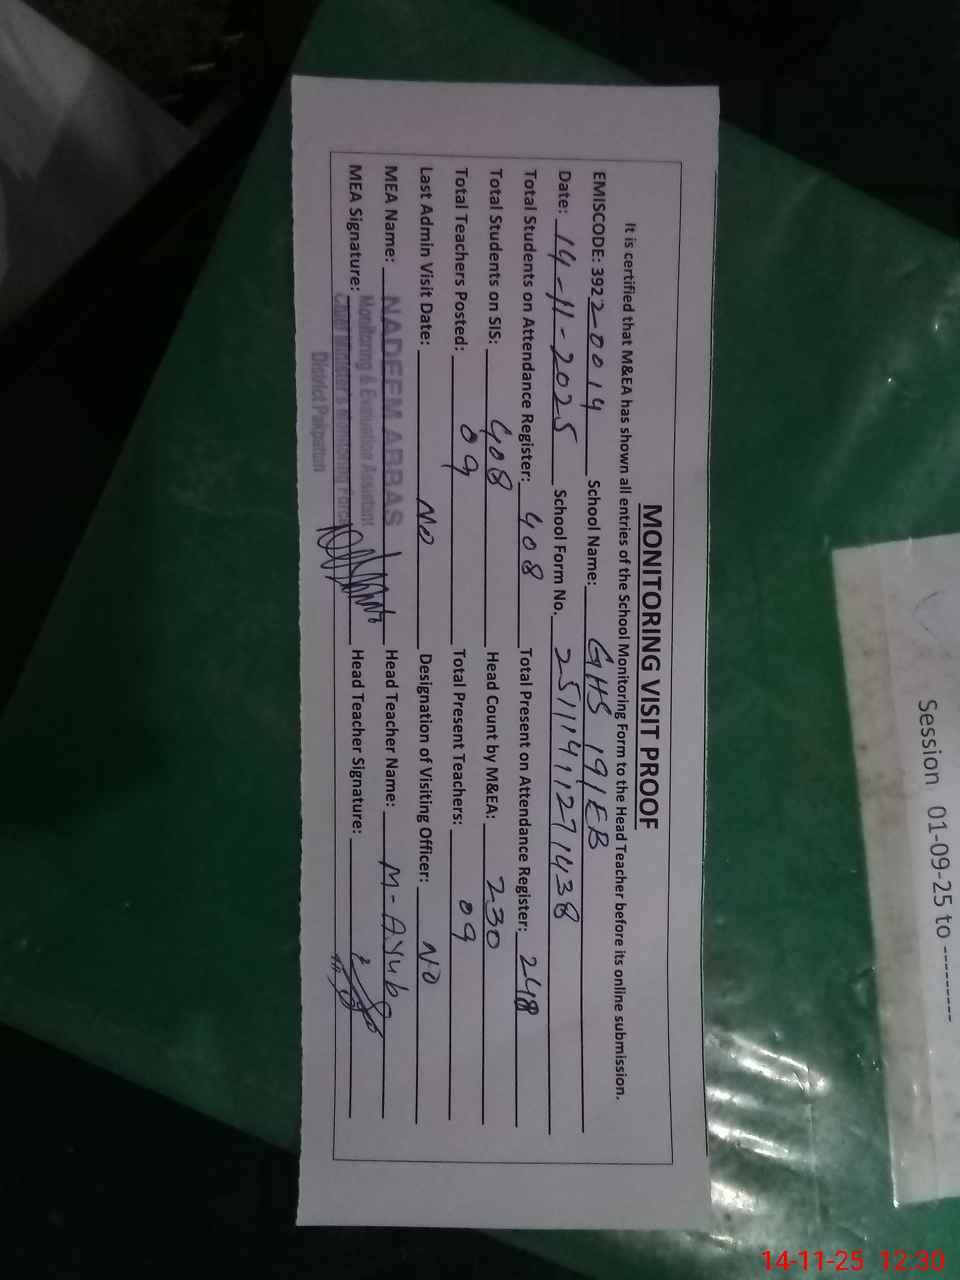 MONITORING VISIT PROOF
It is certified that M&EA has shown all entries of the School Monitoring Form to the Head Teacher before its online submission.
EMISCODE: 39220014 School Name: GHS 191EB
Date: 14-11-2025 School Form No. 25111411271438
Total Students on Attendance Register: 408 Total Present on Attendance Register: 248
Total Students on SIS: 408 Head Count by M&EA: 230
Total Teachers Posted: 09 Total Present Teachers: 09
Last Admin Visit Date: NO Designation of Visiting Officer: NO
MEA Name: NADEEM ABBAS Head Teacher Name: M-AYub
Monitoring & Evaluation Assistant
MEA Signature: Chief Minister's Monitoring Force Head Teacher Signature:
District Pakpattan
Session 01-09-25 to ---------
14-11-25 12:30